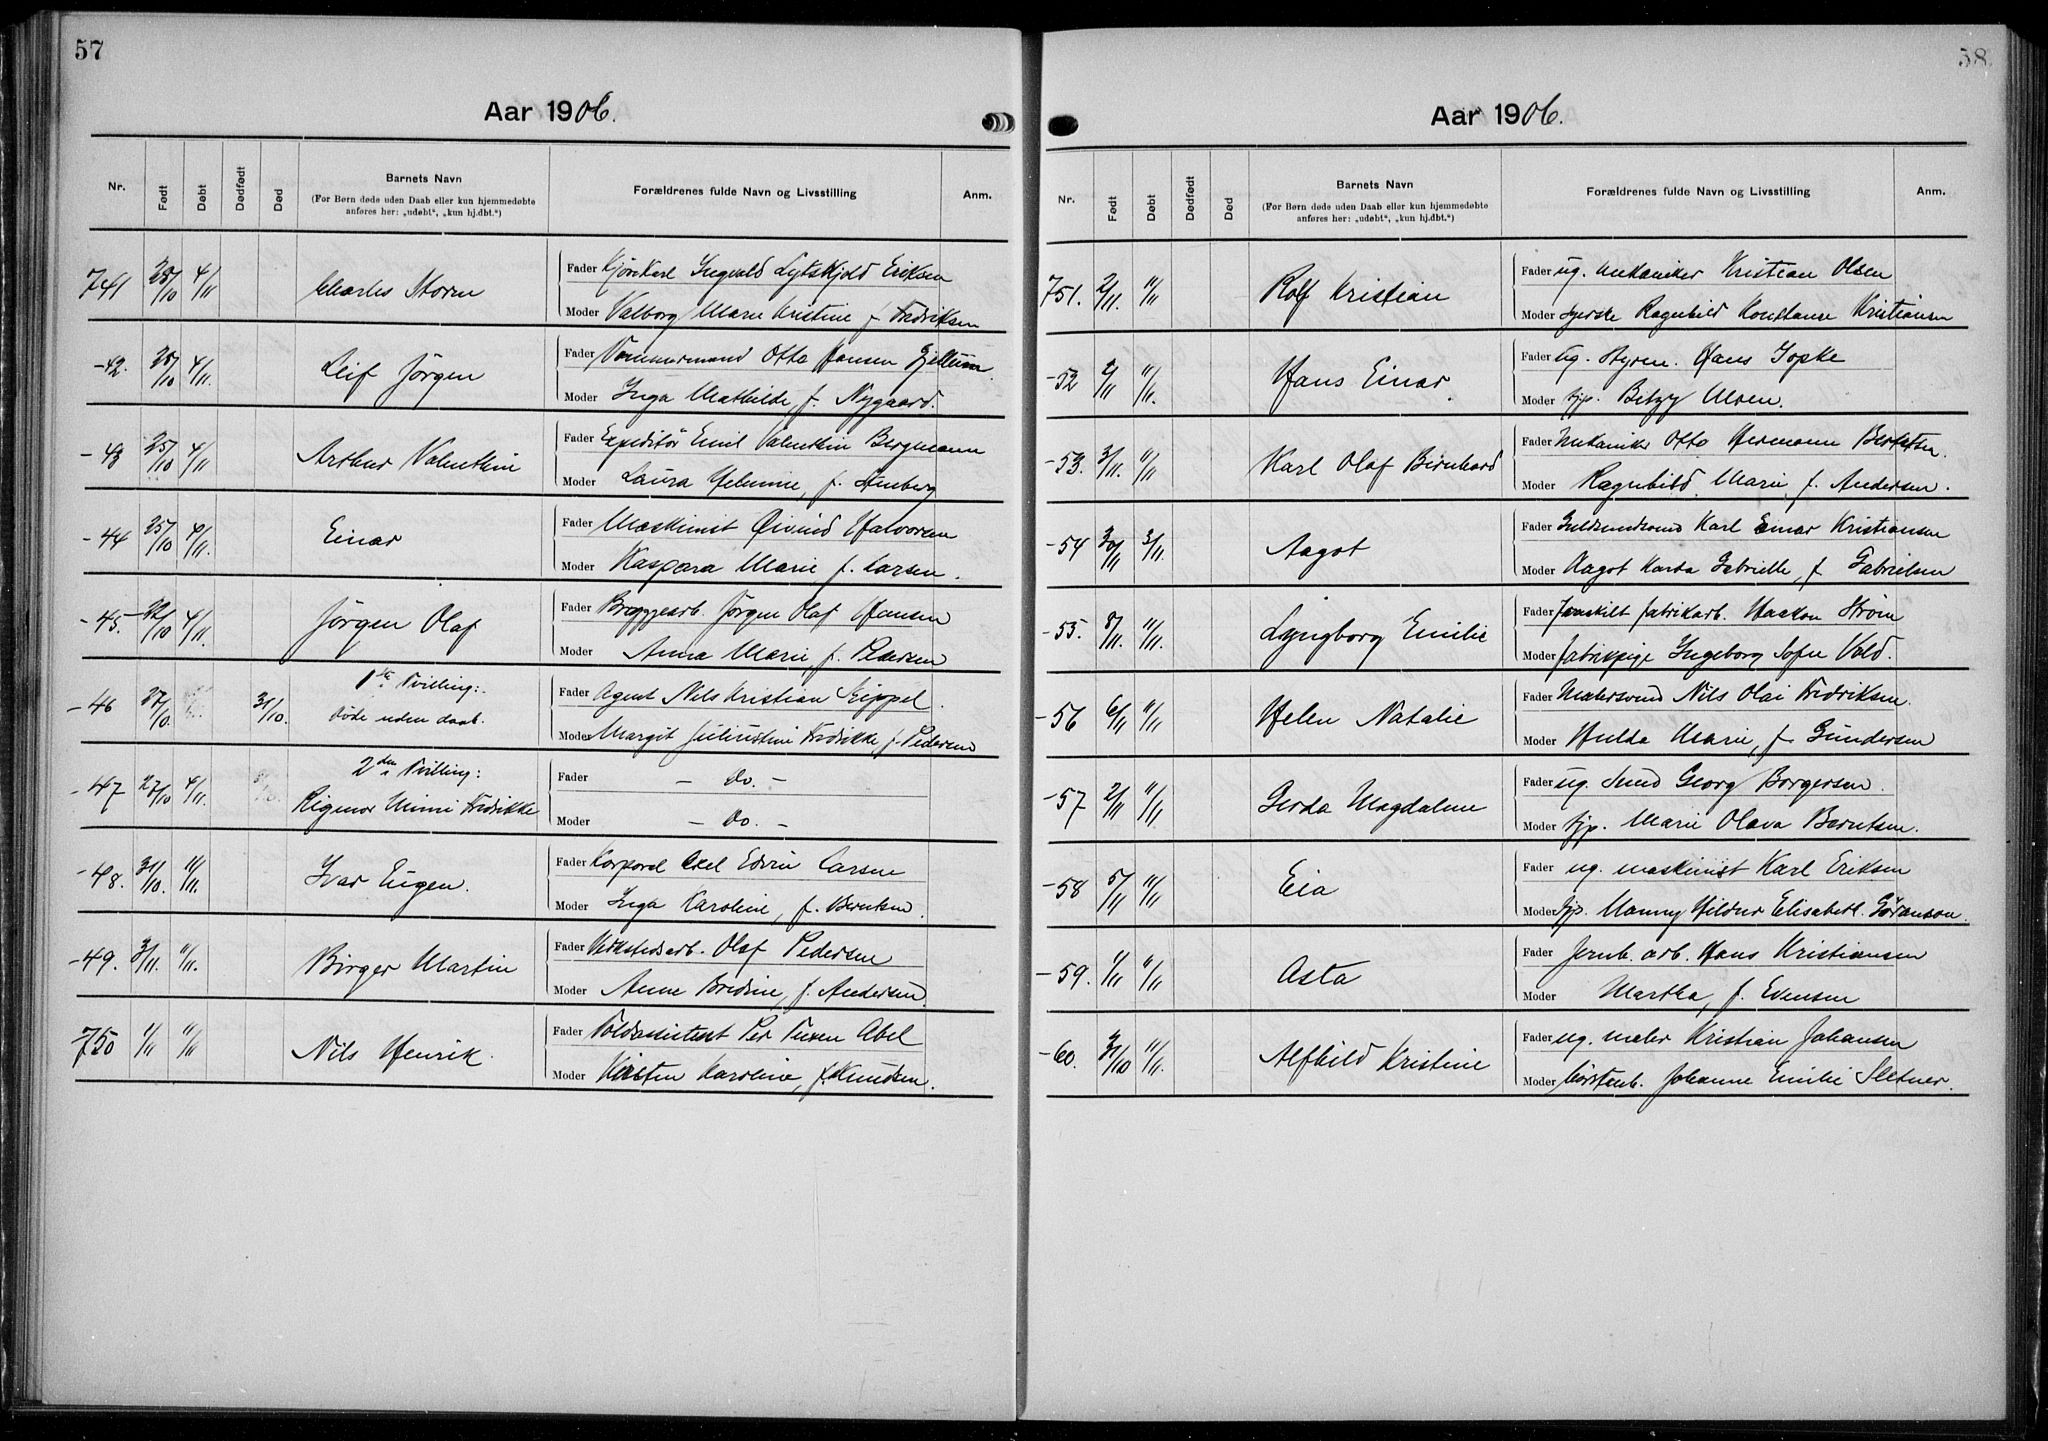 57
Aar 1906.
Nr. Født Døbt Dødfødt Død Barnets Navn Forældrenes fulde Navn og Livsstilling Anm.
(For Børn døde uden Daab eller kun hjemmedøbte
anføres her: „udøbt“, „kun hj.dbt.“)
741 28/10 4/11 Charles Storm Fader Kjørekarl Ingvald Lykskjold Eriksen
Moder Valborg Marie Kristine f. Fredriksen
-42. 4/11. Leif Jörgen Fader Tömmermand Otto Hansen Gjellum.
Moder Inga Mathilde, f. Nygaard.
-43 25/10 4/11 Arthur Valentin Fader Expeditör Emil Valentin Bergmann
Moder Laura Helmine, f.
-44 25/10 4/11. Einar Fader Maskinist Øivind Halvorsen
Moder Kaspara Marie f. Larsen.
-45. 4/11. Jörgen Olaf Fader Bryggearb. Jörgen Olaf Hansen
Moder Anna Marie, f. Pedersen
-46 27/10. 31/10. 1ste Tvilling: Fader Agent Nils Kristian Seippel.
Døde uden daab. Moder Margit Julinstine Fredrikke, f. Pedersen
-47 27/10 4/11. 2den Tvilling: Fader - Do. -
Rigmor Minni Fredrikke Moder - Do. -
-48. 31/10. 11/11. Ivar Eugen. Fader Korporal Axel Edvin Larsen
Moder Inga Karoline, f. Berntsen.
-49. 3/11. 11/11. Birger Martin Fader Verkstedsarb. Olaf Pedersen
Moder Anne Bredine, f. Andersen.
750 1/11 11/11 Nils Henrik. Fader Toldassistent Per Abel
Moder Kirsten Karoline, f. Knudsen.
58.
Aar 1906.
Nr. Født Døbt Dødfødt Død Barnets Navn Forældrenes fulde Navn og Livsstilling Anm.
(For Børn døde uden Daab eller kun hjemmedøbte
anføres her: „udøbt“, „kun hj.dbt.“)
751. 2/11. 11/11 Rolf Kristian Fader ug. Mekaniker Kristian Olsen
Moder Syerske Ragnhild Konstanse Kristiansen
-52 2/11 11/11. Hans Einar. Fader ug. Styrm. Hans Jopke
Moder tjp. Betzy Olsen.
-53. 3/11. 11/11 Karl Olaf Bernhard Fader Mekaniker Otto Hermann Berntsen.
Moder Ragnhild Marie, f. Andersen.
-54 3/11 Aagot Fader Guldsmedsvend Karl Einar Kristiansen
Moder Aagot Karda Gabrielle, f. Gabrielsen
-55. 8/11. 11/11. Lyngborg Emilie Fader fraskilt fabrikarb. Haakon Ström
Moder fabrikpige Ingeborg Sofie Vold.
-56 6/11 11/11 Helen Natalie Fader Malersvend Nils Olai Fredriksen.
Moder Hulda Marie, f. Gundersen
-57 2/11 11/11 Gerda Magdalene Fader ug. Smed Georg Borgersen.
Moder tjp. Marie Olava Berntsen.
-58 5/11 11/11 Eia Fader ug. maskinist Karl Eriksen
Moder tjp. Nanny Hildur Elisabet Göranson.
-59. 1/11 11/11 Asta Fader Jernb. arb. Hans Kristiansen
Moder Martha, f. Evensen
-60. 31/10 11/11. Alfhild Kristine Fader ug. maler Kristian Johansen
Moder börstenb. Johanne Emilie Sletner.